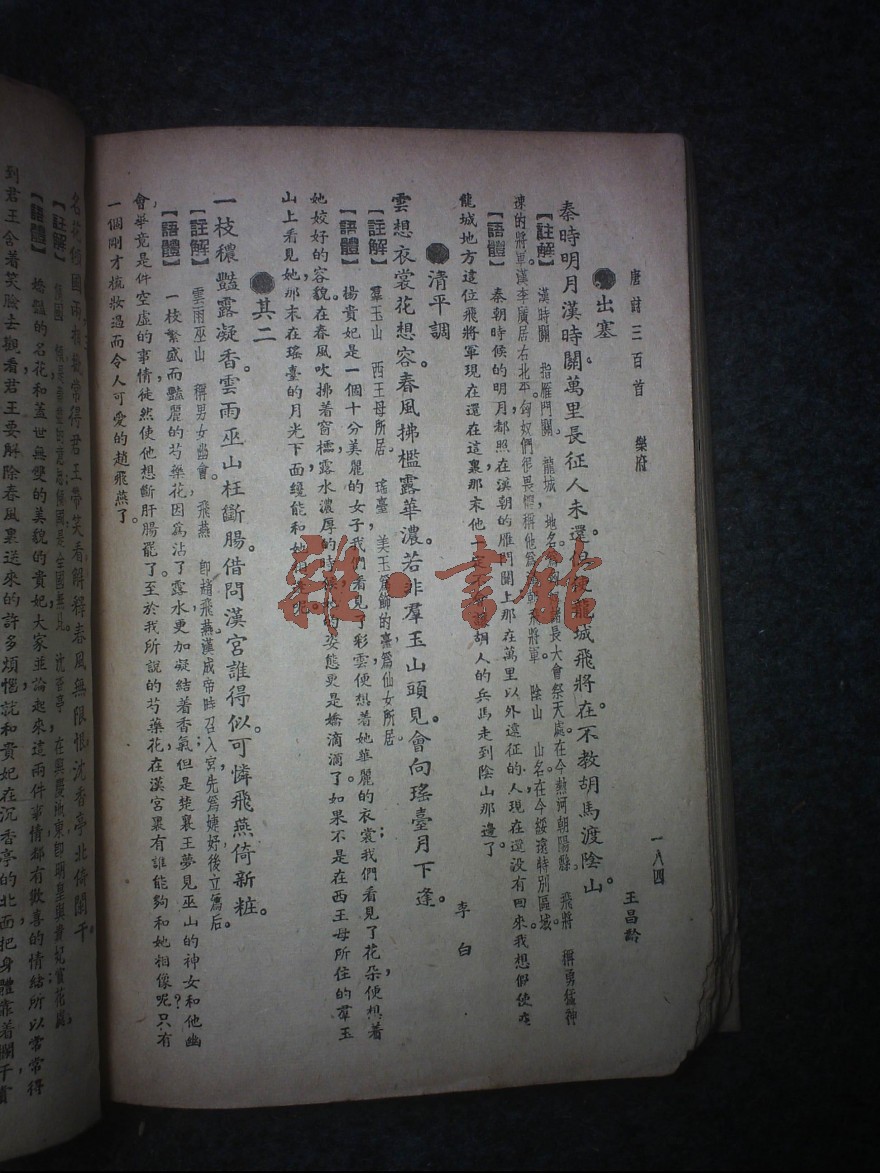 唐詩三百首　樂府　一八四
出塞　王昌齡
秦時明月漢時關。萬里長征人未還。但使龍城飛將在。不教胡馬渡陰山。
【註解】漢時關　指雁門關。龍城，地名　諸長大會祭天處。在今熱河朝陽縣。飛將　稱勇猛神
速的將軍。漢李廣居右北平。匈奴們很畏懼稱他爲　飛將軍。陰山　山名。在今綏遠特別區域。
【語體】秦朝時候的明月，都照在漢朝的雁門關上那在萬里以外遠征的人現在還沒有回來我想假使在
龍城地方這位飛將軍現在還在這裏那末他一定不　胡人的兵馬走到陰山那邊了。
清平調　李白
雲想衣裳花想容。春風拂檻露華濃。若非羣玉山頭見。會向瑤臺月下逢。
【註解】羣玉山　西王母所居。瑤臺，美玉爲飾的臺，爲仙女所居。
【語體】楊貴妃是一個十分美麗的女子我們看見了彩雲便想着她華麗的衣裳；我們看見了花朵便想着
她姣好的容貌。在春風吹拂着窗檻露水濃厚的時候　的姿態更是嬌滴滴了。如果不是在西王母所住的羣玉
山上看見她，那末在瑤臺的月光下面纔能和她
其二
一枝穠豔露凝香。雲雨巫山枉斷腸。借問漢宮誰得似。可憐飛燕倚新粧。
【註解】雲雨巫山　稱男女幽會。飛燕　卽趙飛燕。漢成帝時召入宮；先爲婕妤後立爲后。
【語體】一枝繁盛而豔麗的芍藥花因爲沾了露水更加凝結着香氣。但是楚襄王夢見巫山的神女和他幽
會，畢竟是件空虛的事情，徒然使他想斷肝腸罷了。至於我所說的芍藥花在漢宮裏有誰能夠和她相像呢？只有
一個剛才梳妝過而令人可愛的趙飛燕了。
名花傾國兩相歡。常得君王帶笑看。解釋春風無限恨。沈香亭北倚闌干。
【註解】傾國　傾是　的意思傾國是全國無比。沈香亭　在興慶池東卽明皇與貴妃賞花處。
【語體】嬌豔的名花和蓋世無雙的美貌的貴妃，大家並論起來這兩件事情都有歡喜的情緒所以常常得
到君王含着笑臉去觀看君王要解除春風裏送來的許多煩惱就和貴妃在沉香亭的北面把身體靠着闌干賞
雜·書館